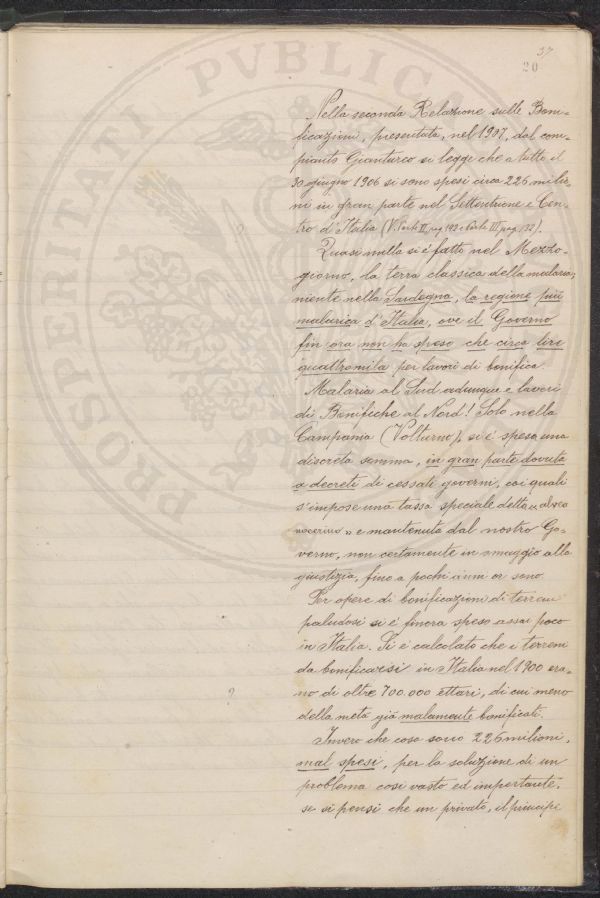 37
20
PRO HERILITATI PVBLICA
Nella seconda Relazione sulle Boni=
ficazioni, presentata, nel 1907, dal com=
pianto Gianturco si legge che a tutto il
30 giugno 1906 si sono spesi circa 226 milio
ni in gran parte nel Settentrione e Cen
tro d'Italia (V. Parte II, pag. 192 e Parte III, pag. 122).
Quasi nulla si è fatto nel Mezzo-
giorno, la terra classica della malaria;
niente nella Sardegna, la regione più
malarica d'Italia, ove il Governo
fin ora non ha speso che circa lire
quattromila per lavori di bonifica.
Malaria al Sud adunque e lavori
di Bonifiche al Nord! Solo nella
Campania (Volturno), si è speso una
discreta somma, in gran parte dovuta
a decreti di cessati governi, coi quali
s'impose una tassa speciale detta « alveo
nocerino » e mantenuta dal nostro Go=
verno, non certamente in omaggio alla
giustizia, fino a pochi anni or sono.
Per opere di bonificazioni di terreni
paludosi si è finora speso assai poco
in Italia. Si è calcolato che i terreni
da bonificarsi in Italia nel 1900 era=
no di oltre 700.000 ettari, di cui meno
della metà già malamente bonificati.
?
Invero che cosa sono 226 milioni,
mal spesi, per la soluzione di un
problema così vasto ed importante,
se si pensi che un privato, il principe